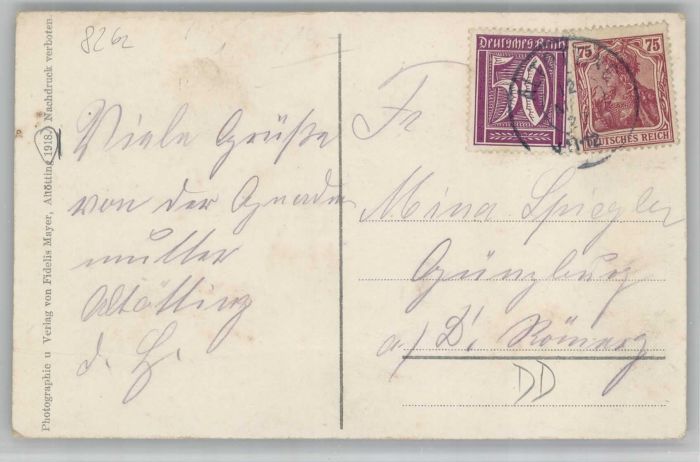 826r
Photographie u Verlag von Fidelis Mayer, Altötting 1918. Nachdruck verboten.
Viele Grüße
von der Gnaden
mutter
Altötting
d. H.
Deutsches Reich
50
75
75
DEUTSCHES REICH
Fr
Mina Spiegler
Günzburg
a/D.
DD